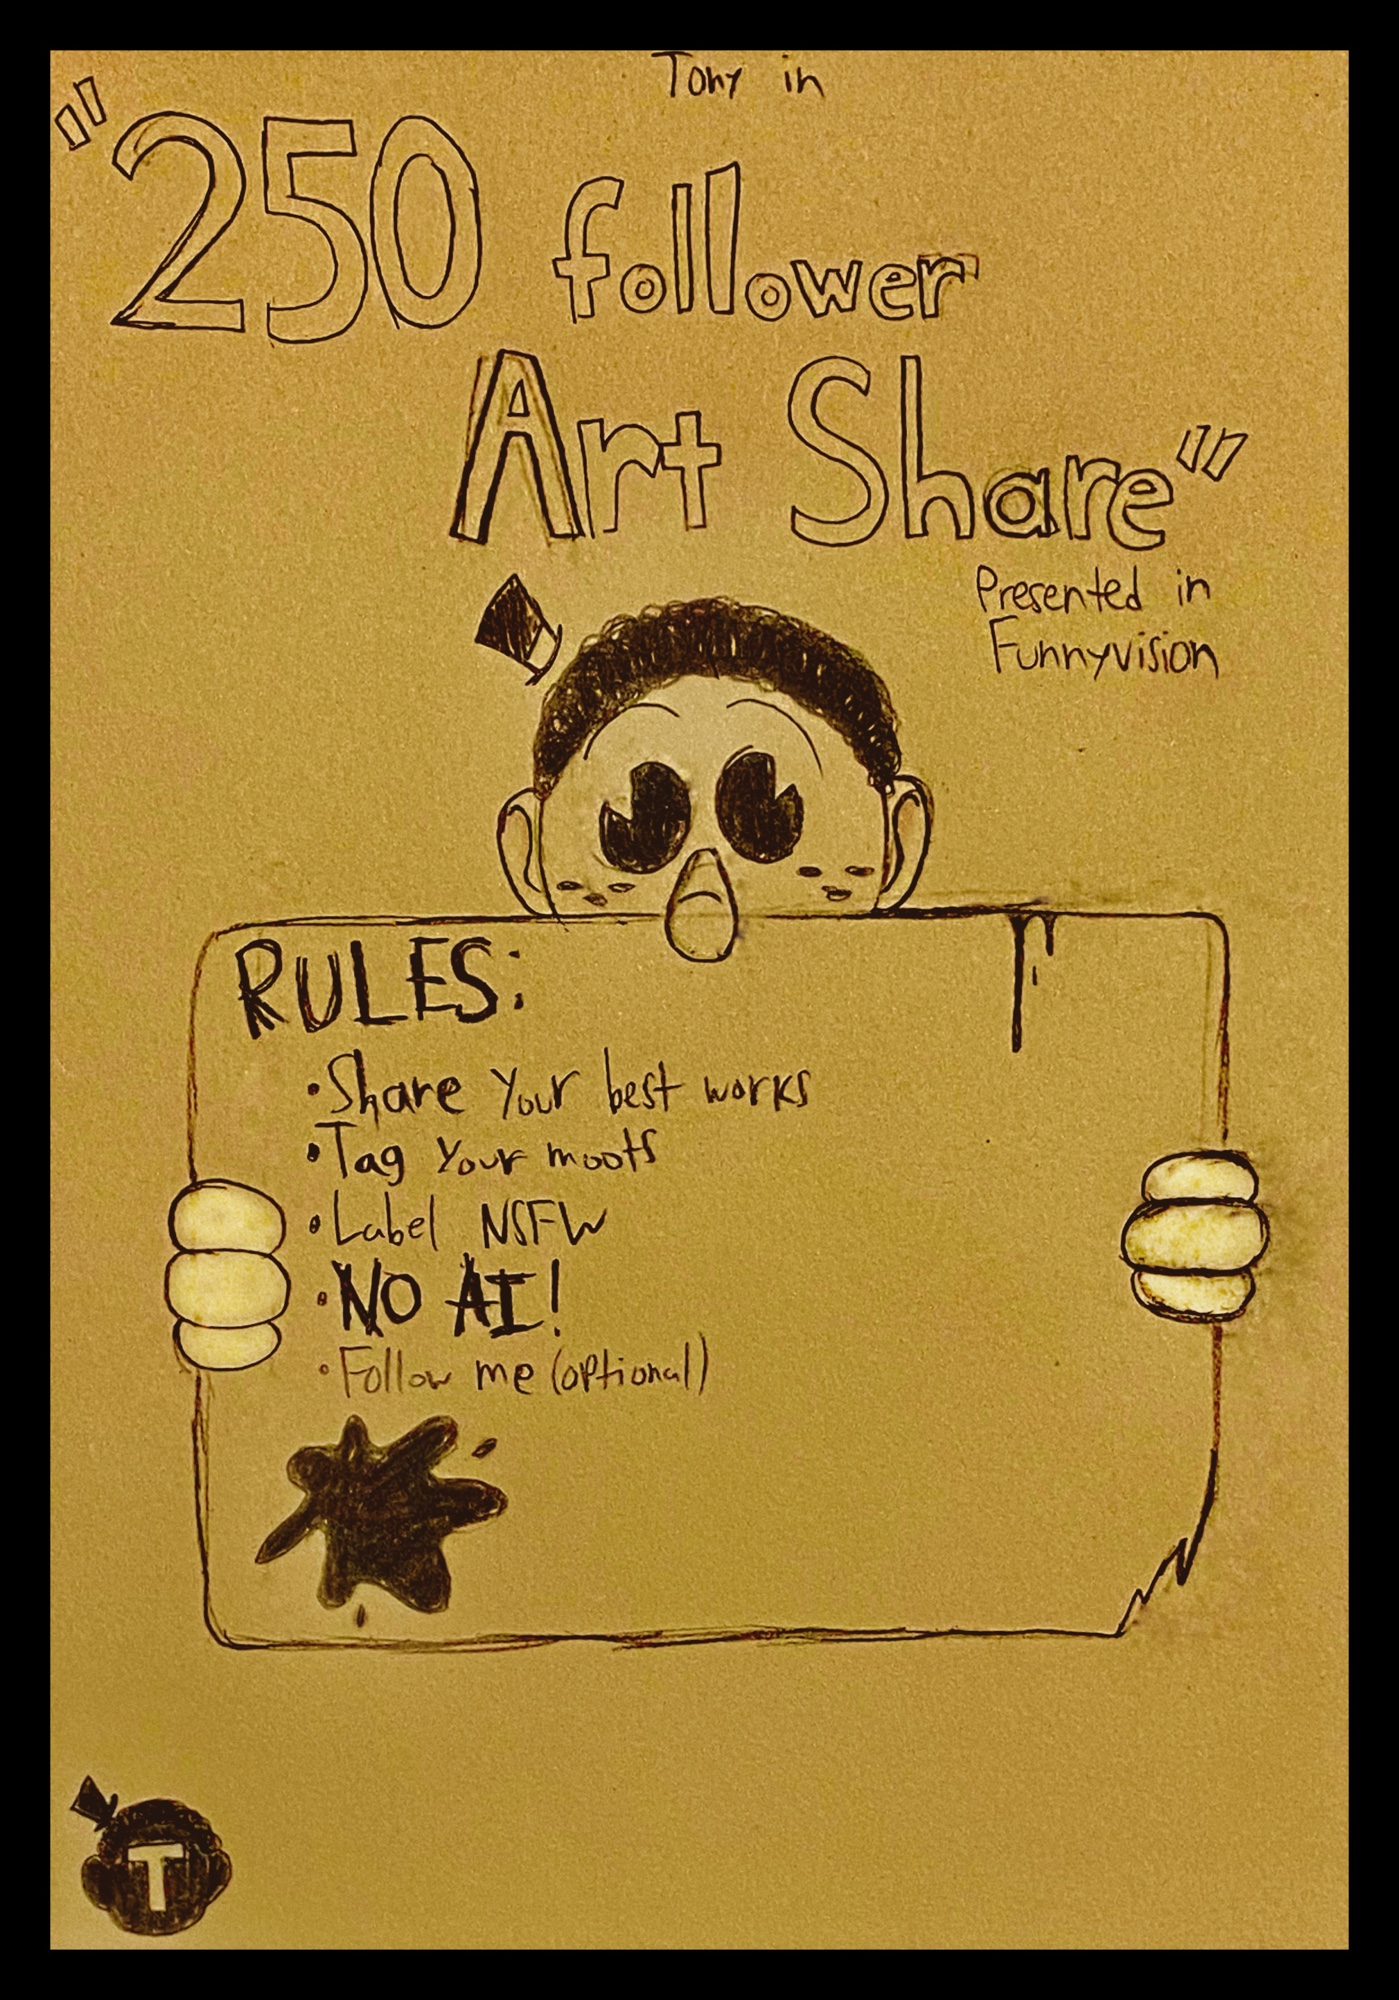 Tony in
"250 follower
Art Share"
Presented in
Funnyvision
RULES:
•Share Your best works
•Tag Your moots
•Label NSFW
•NO AI!
•Follow me (optional)
T